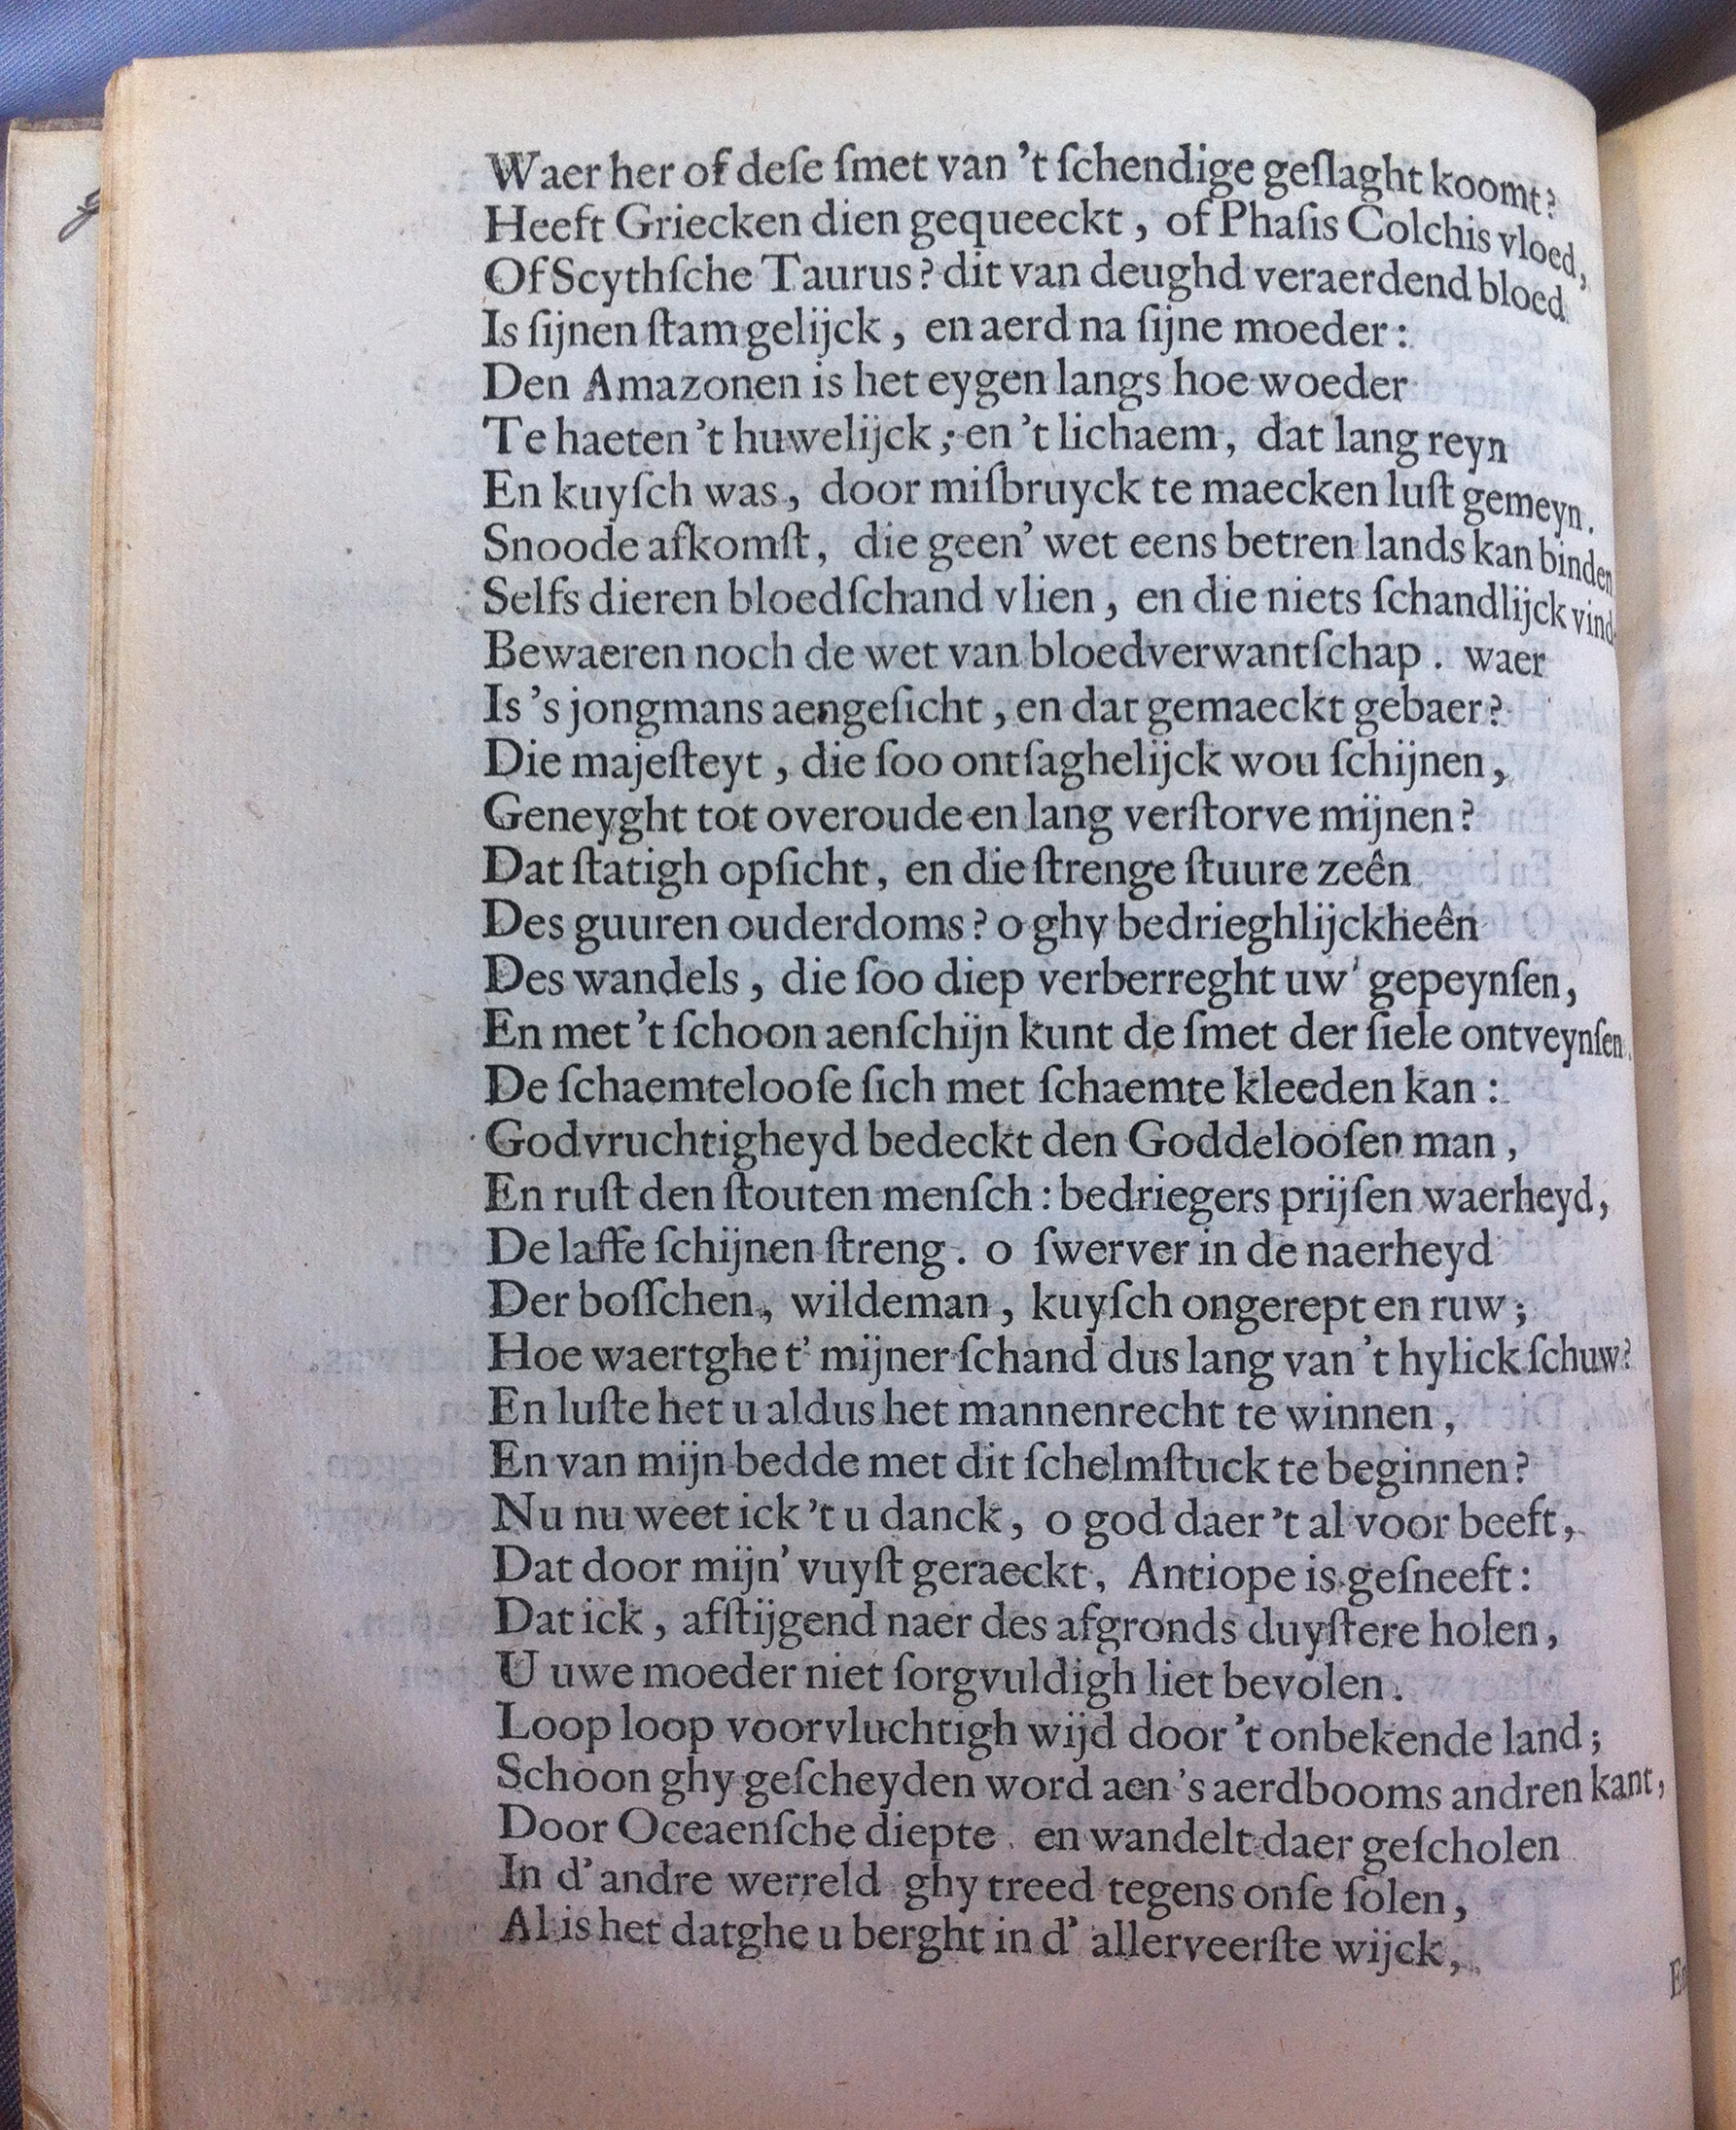 Waer her of deſe ſmet van 't ſchendige geſlaght koomt?
Heeft Griecken dien gequeeckt, of Phaſis Colchis vloed,
Of Scythſche Taurus? dit van deughd veraerdend bloed
Is ſijnen ſtam gelijck, en aerd na ſijne moeder:
Den Amazonen is het eygen langs hoe woeder
Te haeten 't huwelijck; en 't lichaem, dat lang reyn
En kuyſch was, door miſbruyck te maecken luſt gemeyn.
Snoode afkomſt, die geen' wet eens betren lands kan binden
Selfs dieren bloedſchand vlien, en die niets ſchandlijck vind
Bewaeren noch de wet van bloedverwantſchap. waer
Is 's jongmans aengeſicht, en dat gemaeckt gebaer?
Die majeſteyt, die ſoo ontſaghelijck wou ſchijnen,
Geneyght tot overoude en lang verſtorve mijnen?
Dat ſtatigh opſicht, en die ſtrenge ſtuure zeên
Des guuren ouderdoms? o ghy bedrieghlijckheên
Des wandels, die ſoo diep verberreght uw' gepeynſen,
En met 't ſchoon aenſchijn kunt de ſmet der ſiele ontveynſen.
De ſchaemtelooſe ſich met ſchaemte kleeden kan:
Godvruchtigheyd bedeckt den Goddelooſen man,
En ruſt den ſtouten menſch: bedriegers prijſen waerheyd,
De laffe ſchijnen ſtreng. o ſwerver in de naerheyd
Der boſſchen, wildeman, kuyſch ongerept en ruw;
Hoe waertghe t' mijner ſchand dus lang van 't hylick ſchuw?
En luſte het u aldus het mannenrecht te winnen,
En van mijn bedde met dit ſchelmſtuck te beginnen?
Nu nu weet ick 't u danck, o god daer 't al voor beeft,
Dat door mijn' vuyſt geraeckt, Antiope is geſneeft:
Dat ick, afſtijgend naer des afgronds duyſtere holen,
U uwe moeder niet ſorgvuldigh liet bevolen.
Loop loop voorvluchtigh wijd door 't onbekende land;
Schoon ghy geſcheyden word aen 's aerdbooms andren kant,
Door Oceaenſche diepte. en wandelt daer geſcholen
In d' andre werreld ghy treed tegens onſe ſolen,
Al is het datghe u berght in d' allerveerſte wijck,